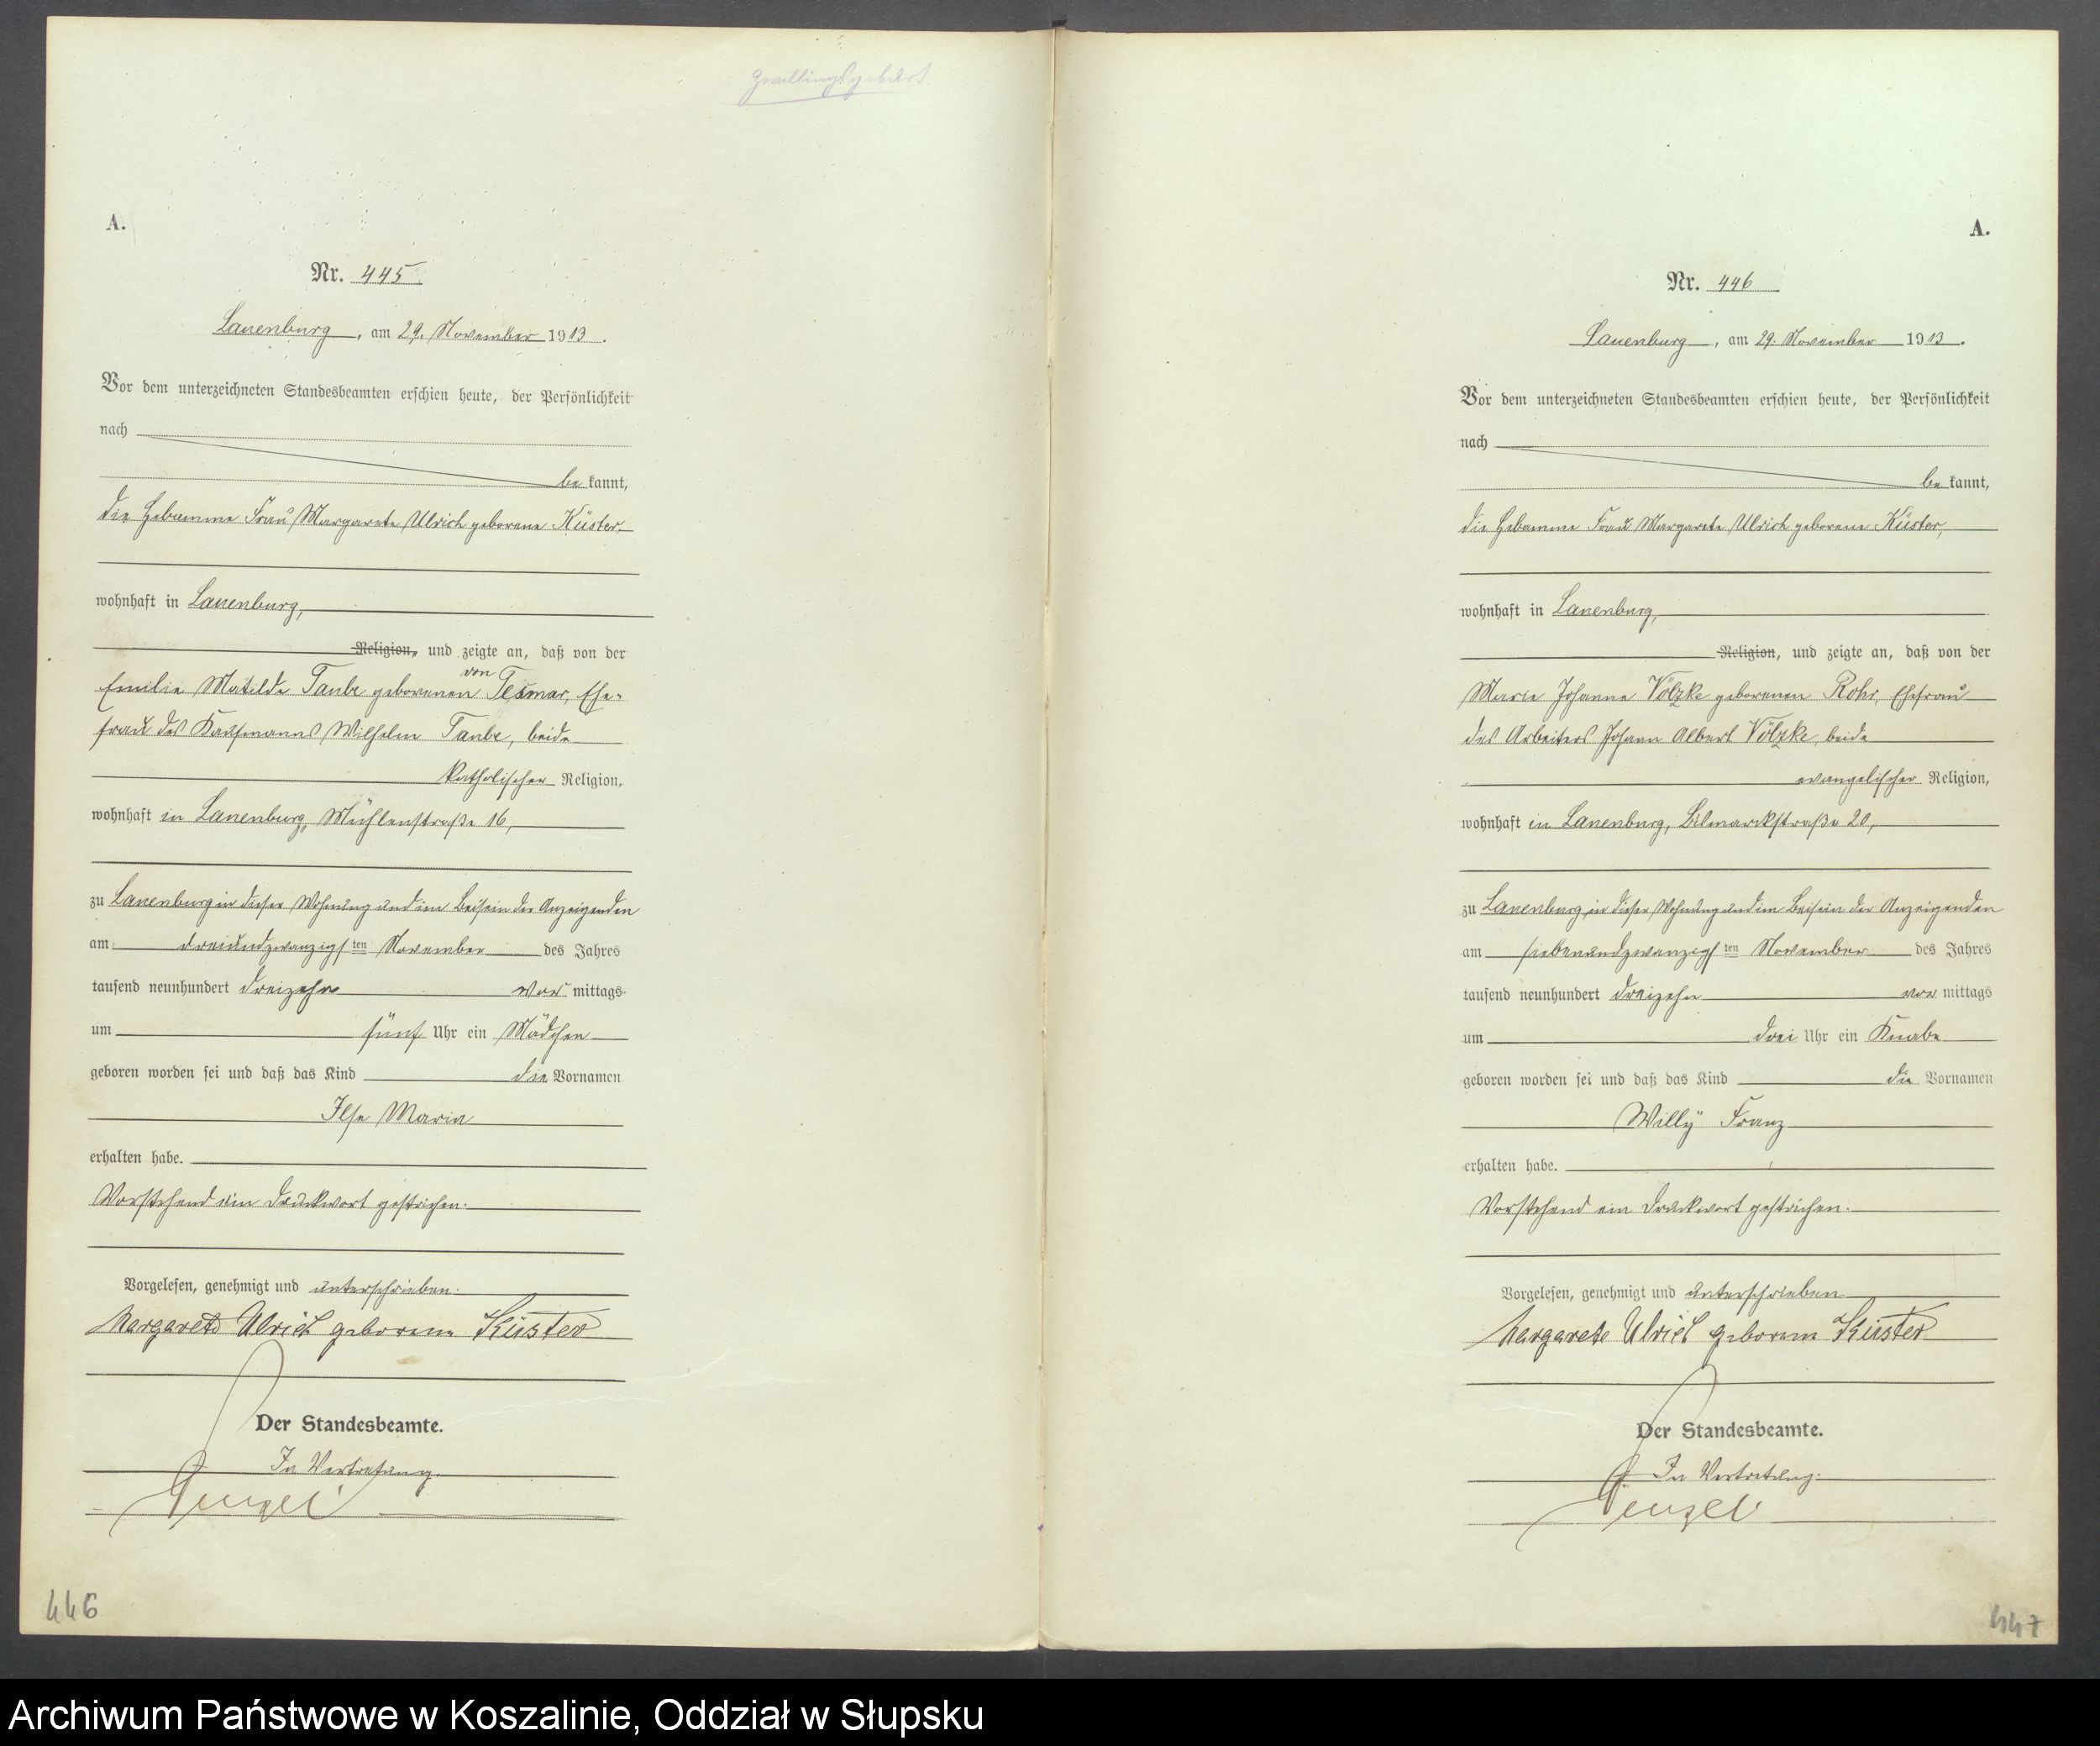 Zwillingsgeburt
A.
Nr. 445
Lauenburg, am 29. November 1913.
Vor dem unterzeichneten Standesbeamten erschien heute, der Persönlichkeit
nach
bekannt,
die Hebamme Frau Margarete Ulrich geborene Küster,
wohnhaft in Lauenburg,
Religion, und zeigte an, daß von der
von
Emilie Matilde Taube geborenen Tesmar, Ehe-
frau des Kaufmanns Wilhelm Taube, beide
katholischer Religion,
wohnhaft in Lauenburg, Mühlenstraße 16,
zu Lauenburg in dieser Wohnung und im Beisein der Anzeigenden
am dreiundzwanzigsten November des Jahres
tausend neunhundert dreizehn vormittags
um fünf Uhr ein Mädchen
geboren worden sei und daß das Kind die Vornamen
Ilse Maria
erhalten habe.
Vorstehend ein Druckwort gestrichen.
Vorgelesen, genehmigt und unterschrieben.
Margarete Ulrich geborene Küster
Der Standesbeamte.
In Vertretung.
446
A.
Nr. 446
Lauenburg, am 29. November 1913.
Vor dem unterzeichneten Standesbeamten erschien heute, der Persönlichkeit
nach
bekannt,
die Hebamme Frau Margarete Ulrich geborene Küster,
wohnhaft in Lauenburg,
Religion, und zeigte an, daß von der
Marie Johanne Völzke geborenen Rohr, Ehefrau
des Arbeiters Johann Albert Völzke, beide
evangelischer Religion,
wohnhaft in Lauenburg, Bismarckstraße 20,
zu Lauenburg in dieser Wohnung und im Beisein der Anzeigenden
am siebenundzwanzigsten November des Jahres
tausend neunhundert dreizehn vormittags
um drei Uhr ein Knabe
geboren worden sei und daß das Kind die Vornamen
Willy Franz
erhalten habe.
Vorstehend ein Druckwort gestrichen.
Vorgelesen, genehmigt und unterschrieben
Margarete Ulrich geborene Küster
Der Standesbeamte.
In Vertretung.
447
Archiwum Państwowe w Koszalinie, Oddział w Słupsku